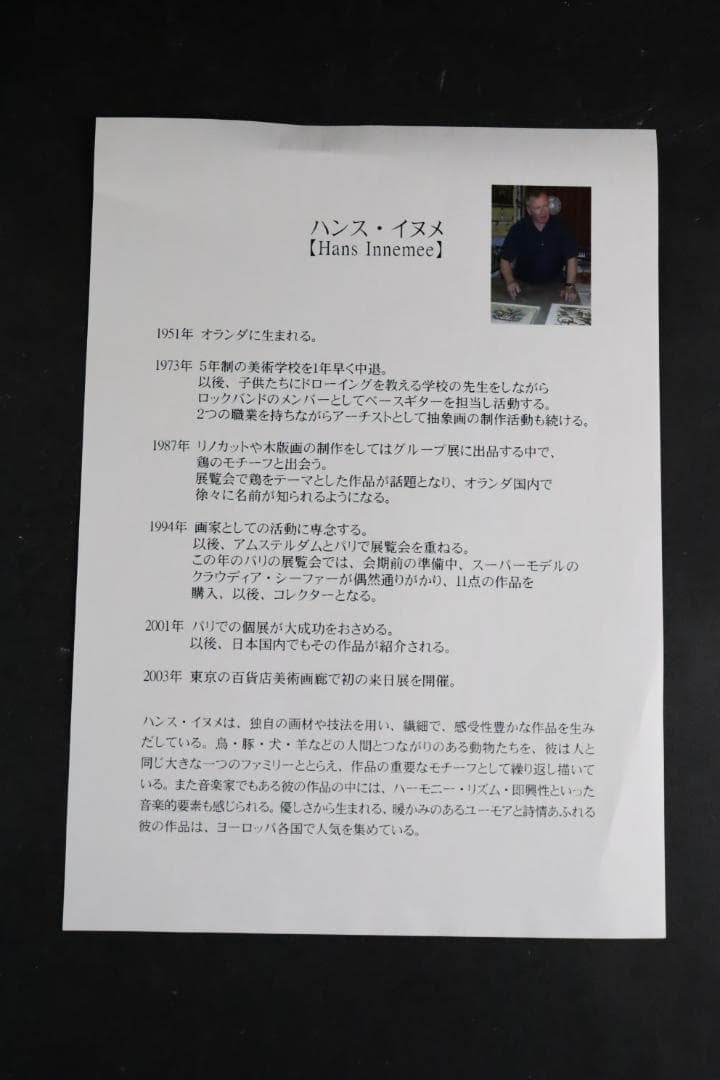 ハンス・イヌメ
【Hans Innemee】
1951年 オランダに生まれる。
1973年 5年制の美術学校を1年早く中退。
以後、子供たちにドローイングを教える学校の先生をしながら
ロックバンドのメンバーとしてベースギターを担当し活動する。
2つの職業を持ちながらアーチストとして抽象画の制作活動も続ける。
1987年 リノカットや木版画の制作をしてはグループ展に出品する中で、
鶏のモチーフと出会う。
展覧会で鶏をテーマとした作品が話題となり、オランダ国内で
徐々に名前が知られるようになる。
1994年 画家としての活動に専念する。
以後、アムステルダムとパリで展覧会を重ねる。
この年のパリの展覧会では、会期前の準備中、スーパーモデルの
クラウディア・シーファーが偶然通りがかり、11点の作品を
購入、以後、コレクターとなる。
2001年 パリでの個展が大成功をおさめる。
以後、日本国内でもその作品が紹介される。
2003年 東京の百貨店美術画廊で初の来日展を開催。
ハンス・イヌメは、独自の画材や技法を用い、繊細で、感受性豊かな作品を生み
だしている。鳥・豚・犬・羊などの人間とつながりのある動物たちを、彼は人と
同じ大きな一つのファミリーととらえ、作品の重要なモチーフとして繰り返し描いて
いる。また音楽家でもある彼の作品の中には、ハーモニー・リズム・即興性といった
音楽的要素も感じられる。優しさから生まれる、暖かみのあるユーモアと詩情あふれる
彼の作品は、ヨーロッパ各国で人気を集めている。